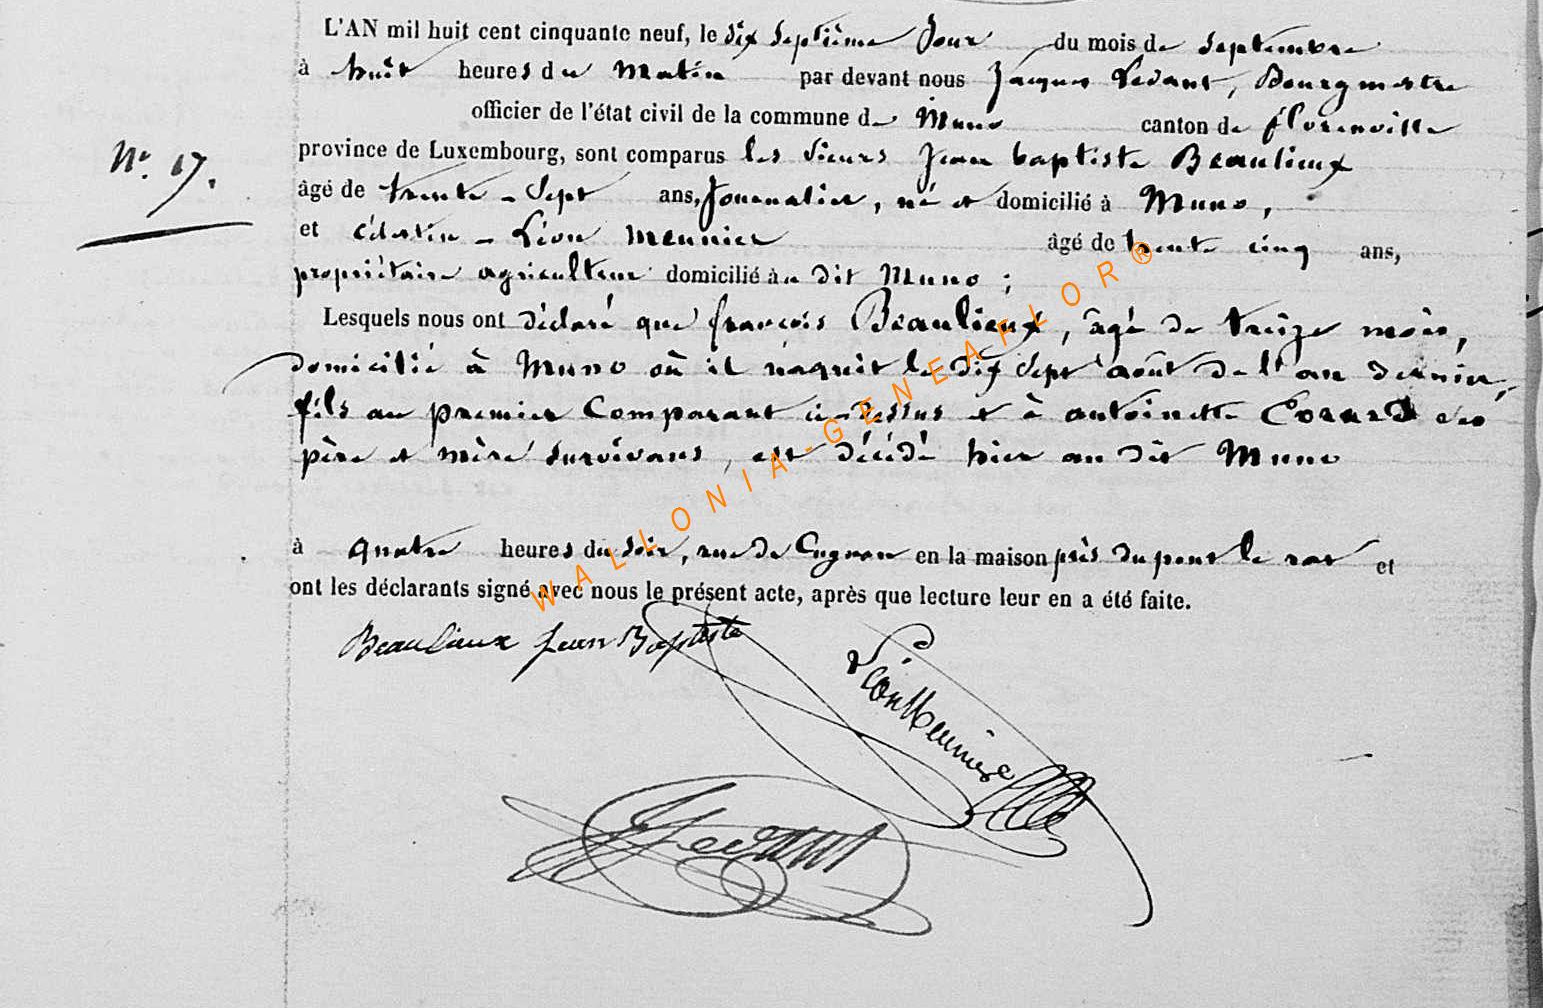 L'AN mil huit cent cinquante neuf, le dix septième Jour du mois de Septembre
à huit heures du Matin par devant nous Jacques Ledant, Bourgmestre
officier de l'état civil de la commune de Muno canton de florenville
N° 17.
province de Luxembourg, sont comparus les Sieurs Jean baptiste Beaulieux
âgé de trente-Sept ans, Journalier, né et domicilié à Muno,
et Célestin-Léon Meunier âgé de trente cinq ans,
propriétaire agriculteur domicilié au dit Muno ;
Lesquels nous ont déclaré que françois Beaulieux, âgé de treize mois,
domicilié à Muno où il naquit le dix Sept août de l'an dernier,
fils au premier Comparant ci-dessus et à antoinette Evrard ses
père et mère survivans, est décédé hier au dit Muno
à quatre heures du soir, rue de Cugnon en la maison près du pont le rat et
ont les déclarants signé avec nous le présent acte, après que lecture leur en a été faite.
Beaulieux Jean Baptiste
Léon Meunier
J Ledant
WALLONIA-GENEAFLOR®